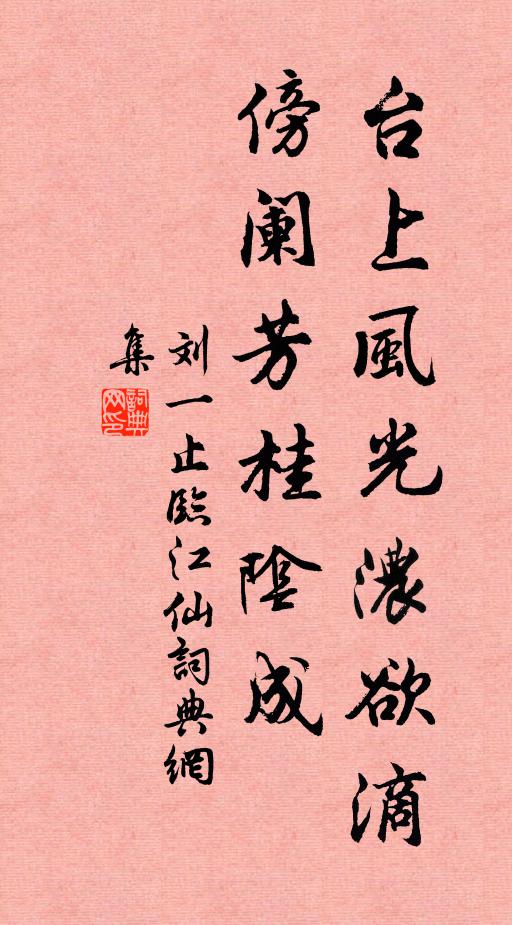 台上風光濃欲滴
傍阑芳桂陰成
刘一止臨江仙詞典網
集
詞典
网印